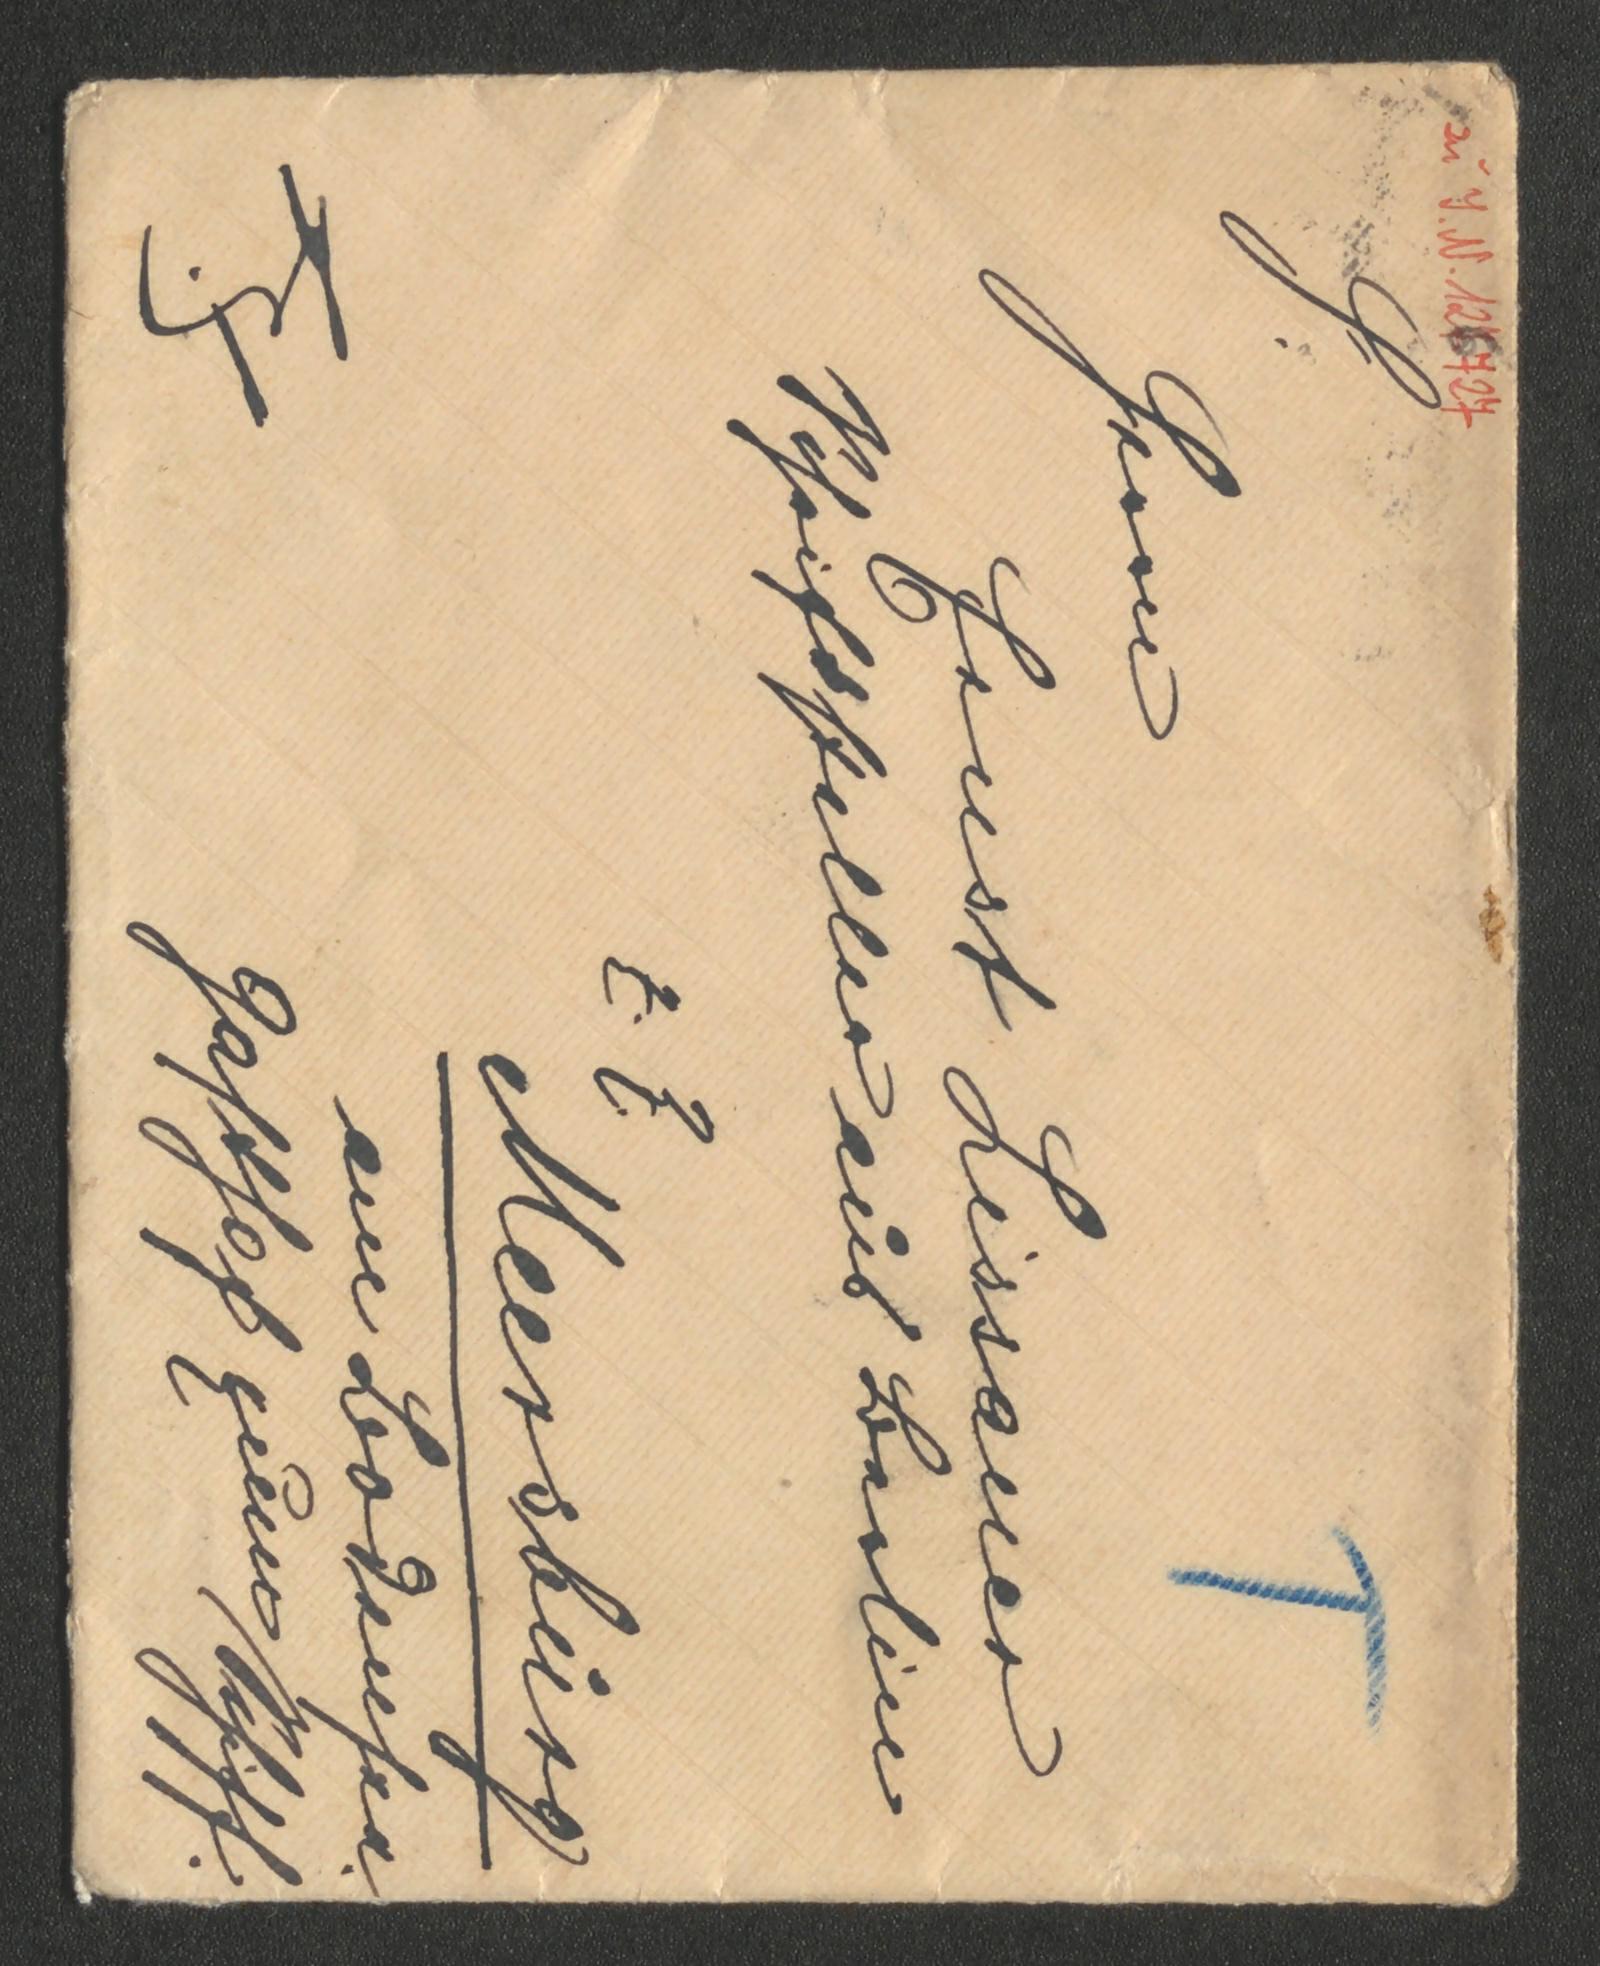 zu I.N. 126727
S.
Herrn
Ernst Lissauer
Schriftsteller aus Berlin
z. Z.
Meersburg
am Bodensee.
Gasthof zum Schiff.